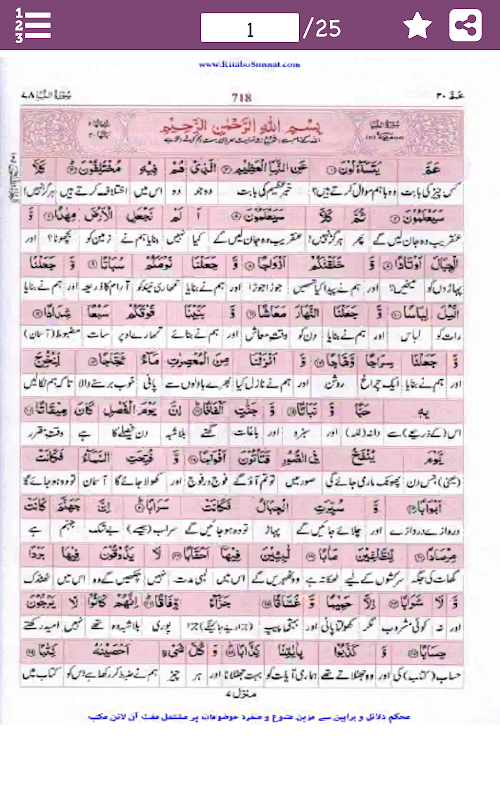 1 /25
www.KitaboSunnat.com
عَمَّ ۳۰ 718 سُوْرَةُ النَّبَاِ ۷۸
بِسْمِ اللّٰهِ الرَّحْمٰنِ الرَّحِيْمِ
عَمَّ يَتَسَآءَلُوْنَ عَنِ النَّبَاِ الْعَظِيْمِ الَّذِيْ هُمْ فِيْهِ مُخْتَلِفُوْنَ كَلَّا
کس چیز کی بابت وہ باہم سوال کرتے ہیں؟ خبر عظیم کی بابت وہ جو وہ اس میں اختلاف کرتے ہیں ہرگز نہیں!
سَيَعْلَمُوْنَ ثُمَّ كَلَّا سَيَعْلَمُوْنَ اَ لَمْ نَجْعَلِ الْاَرْضَ مِهٰدًا وَّ
عنقریب وہ جان لیں گے پھر ہرگز نہیں! عنقریب وہ جان لیں گے کیا نہیں بنایا ہم نے زمین کو بچھونا؟ اور
الْجِبَالَ اَوْتَادًا وَّ خَلَقْنٰكُمْ اَزْوَاجًا وَّ جَعَلْنَا نَوْمَكُمْ سُبَاتًا وَّ جَعَلْنَا
پہاڑوں کو میخیں؟ اور ہم نے پیدا کیا تمہیں جوڑا جوڑا اور ہم نے بنایا تمہاری نیند کو آرام کا ذریعہ اور ہم نے بنایا
الَّيْلَ لِبَاسًا وَّ جَعَلْنَا النَّهَارَ مَعَاشًا وَّ بَنَيْنَا فَوْقَكُمْ سَبْعًا شِدَادًا
رات کو لباس اور ہم نے بنایا دن کو وقت معاش اور ہم نے بنائے تمہارے اوپر سات مضبوط (آسمان)
وَّ جَعَلْنَا سِرَاجًا وَّهَّاجًا وَّ اَنْزَلْنَا مِنَ الْمُعْصِرٰتِ مَآءً ثَجَّاجًا لِّنُخْرِجَ
اور ہم نے بنایا ایک چراغ روشن اور ہم نے نازل کیا بھرے بادلوں سے پانی خوب برسنے والا تاکہ ہم نکالیں
بِهٖ حَبًّا وَّ نَبَاتًا وَّ جَنّٰتٍ اَلْفَافًا اِنَّ يَوْمَ الْفَصْلِ كَانَ مِيْقَاتًا
اس (کے ذریعے) سے دانہ (غلہ) اور سبزہ اور باغات گھنے بلاشبہ دن فیصلے کا ہے وقت مقرر
يَّوْمَ يُنْفَخُ فِي الصُّوْرِ فَتَاْتُوْنَ اَفْوَاجًا وَّ فُتِحَتِ السَّمَآءُ فَكَانَتْ
(یعنی) جس دن پھونک ماری جائے گی صور میں تو تم آؤ گے فوج در فوج اور کھولا جائے گا آسمان تو وہ ہو جائے گا
اَبْوَابًا وَّ سُيِّرَتِ الْجِبَالُ فَكَانَتْ سَرَابًا اِنَّ جَهَنَّمَ كَانَتْ
دروازے دروازے اور چلائے جائیں گے پہاڑ تو وہ ہو جائیں گے سراب (جیسے) بے شک جہنم ہے
مِرْصَادًا لِّلطّٰغِيْنَ مَاٰبًا لّٰبِثِيْنَ فِيْهَآ اَحْقَابًا لَا يَذُوْقُوْنَ فِيْهَا بَرْدًا
گھات کی جگہ سرکشوں کے لیے ٹھکانہ ہے وہ ٹھہریں گے اس میں لمبی مدت نہیں چکھیں گے وہ اس میں ٹھنڈک
وَّ لَا شَرَابًا اِلَّا حَمِيْمًا وَّ غَسَّاقًا جَزَآءً وِّفَاقًا اِنَّهُمْ كَانُوْا لَا يَرْجُوْنَ
اور نہ کوئی مشروب مگر کھولتا پانی اور بہتی پیپ جزا پوری بلاشبہ وہ تھے نہیں امید رکھتے
حِسَابًا وَّ كَذَّبُوْا بِاٰيٰتِنَا كِذَّابًا وَ كُلَّ شَيْءٍ اَحْصَيْنٰهُ كِتٰبًا
حساب (کتاب) کی اور وہ جھٹلاتے تھے ہماری آیات کو بہت جھٹلانا اور ہر چیز ہم نے ضبط کر رکھا ہے اس کو کتاب میں
منزل ۷
محکم دلائل و براہین سے مزین متنوع و منفرد موضوعات پر مشتمل مفت آن لائن مکتبہ